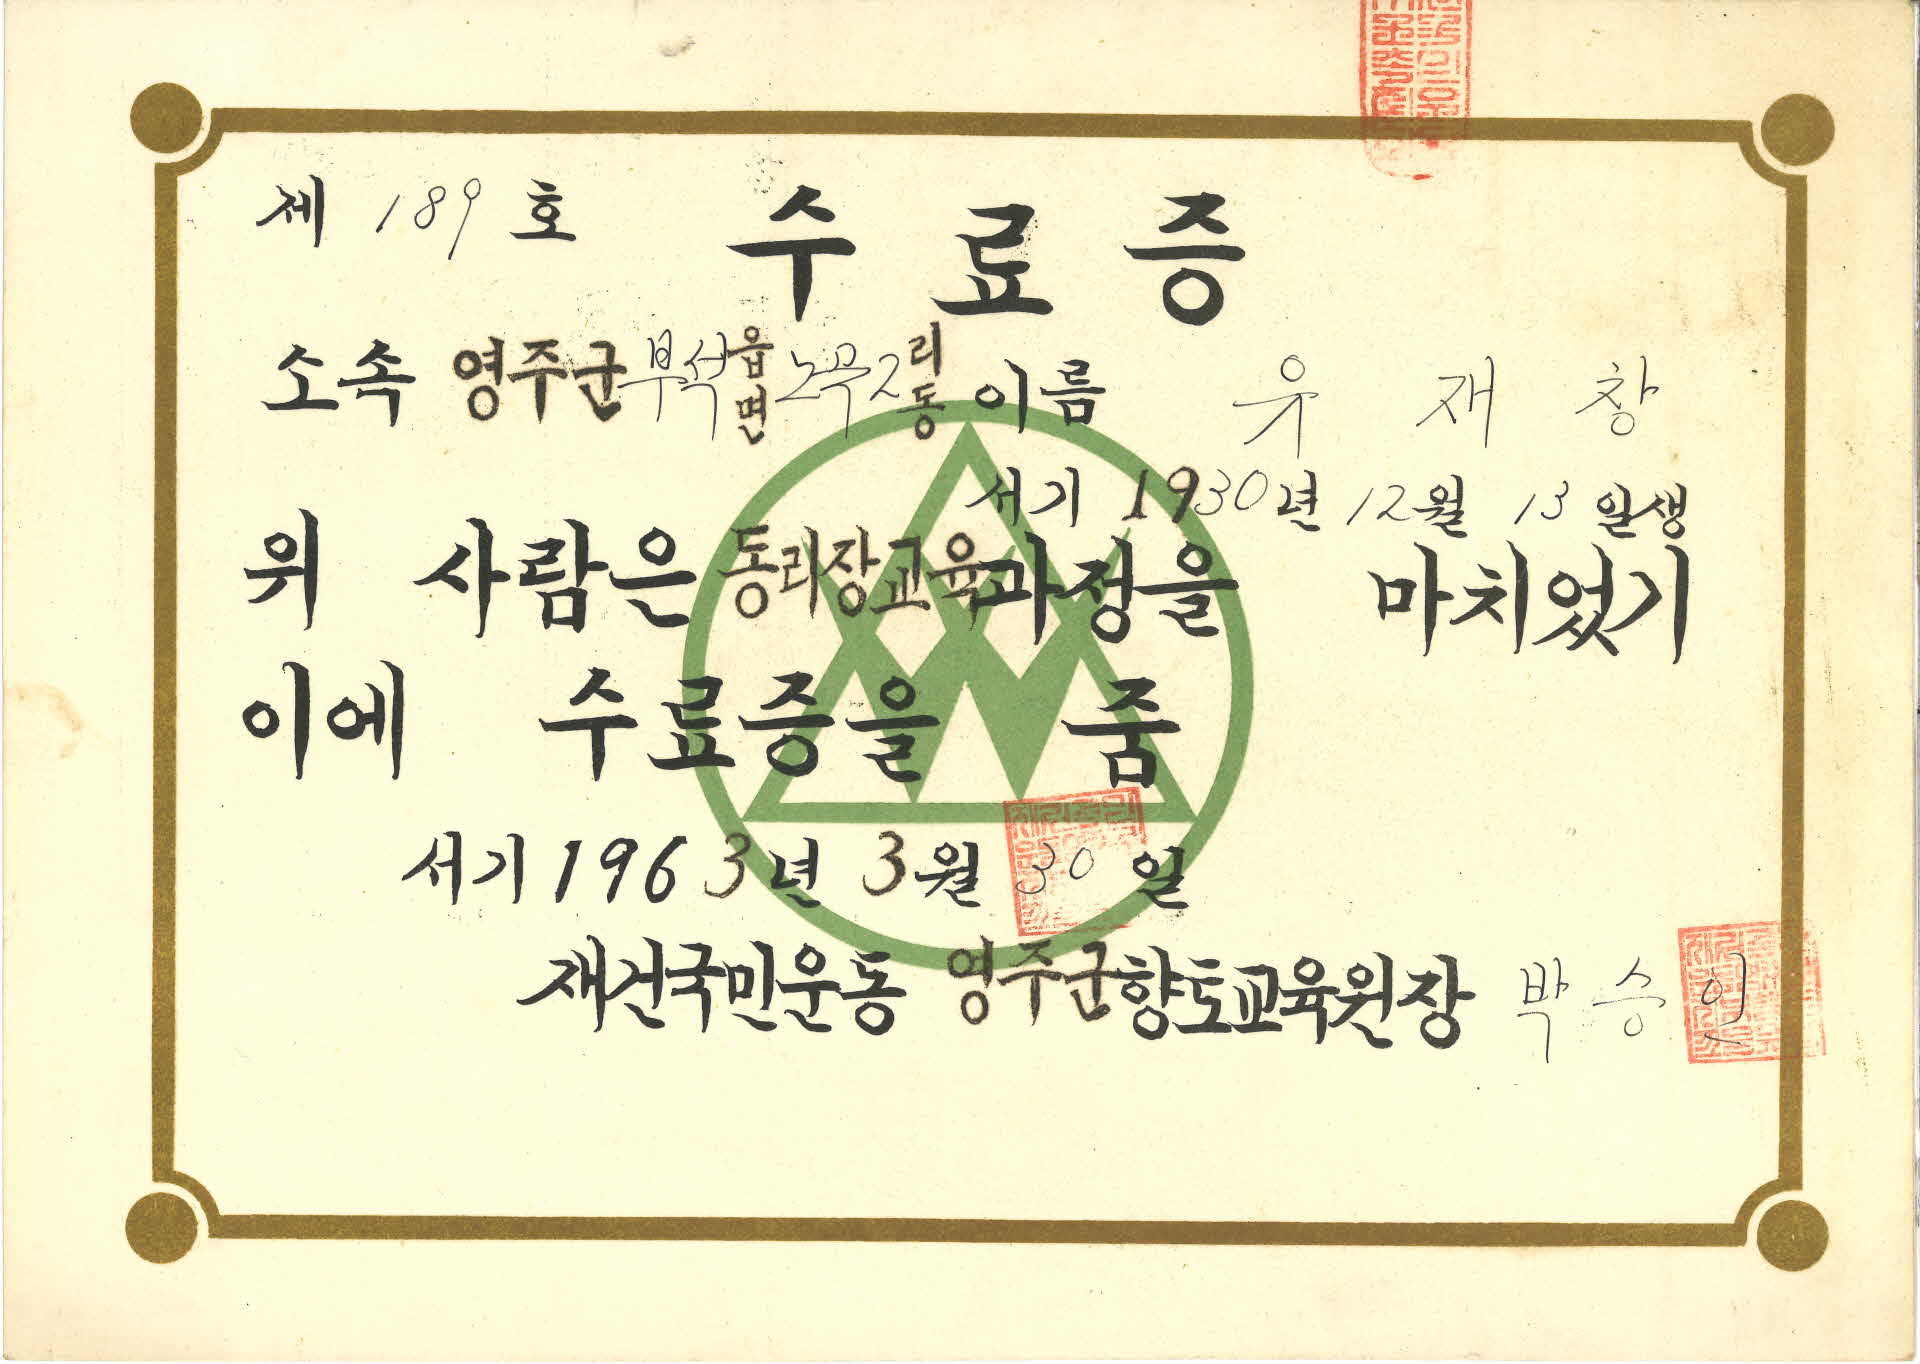 제 189 호 수료증
소속 영주군 부석 읍면 노곡2 리동 이름 우 재 창
서기 1930년 12월 13일생
위 사람은 동리장교육과정을 마치었기
이에 수료증을 줌
서기 1963년 3월 30일
재건국민운동 영주군향토교육원장 박 승 인